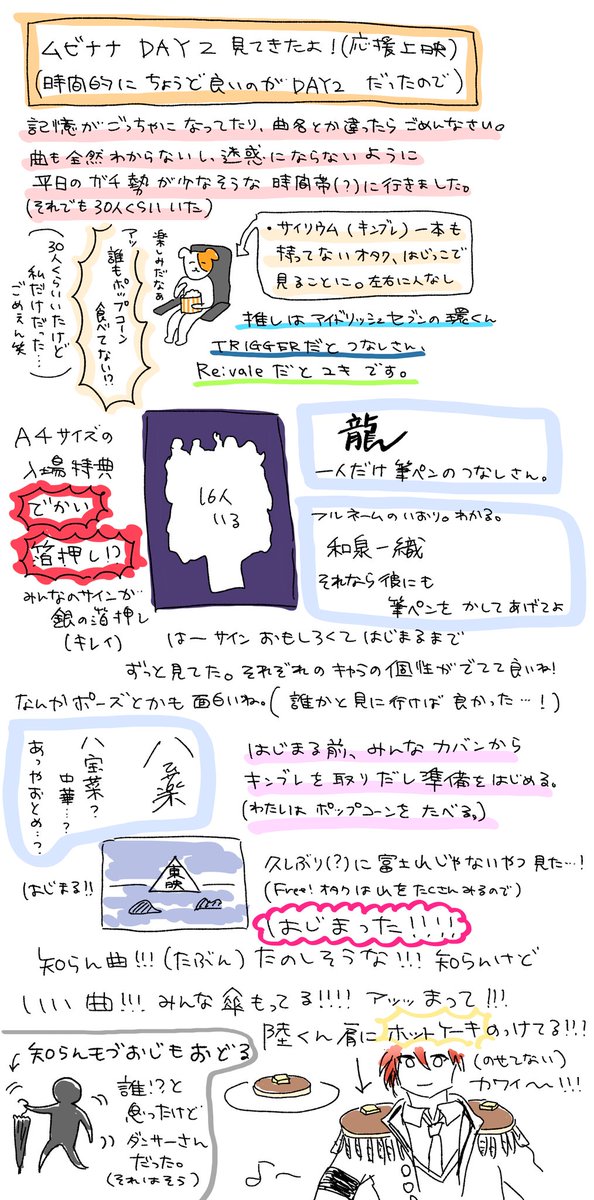 ムビナナ DAY2 見てきたよ！(応援上映)
(時間的にちょうど良いのがDAY2 だったので)
記憶がごっちゃになってたり、曲名とか違ったらごめんなさい。
曲も全然わからないし、迷惑にならないように
平日のガチ勢が少なそうな時間帯(?)に行きました。
(それでも30人くらいいた)
・サイリウム(キンブレ)一本も
持ってないオタク、はじっこで
見ることに。左右に人なし
楽しみだなぁ
アッ
誰もポップコーン
食べてない!?
30人くらいいたけど
私だけだった…
ごめぇん笑
推しはアイドリッシュセブンの環くん
TRIGGERだとつなしさん、
Re:valeだとユキです。
A4サイズの
入場特典
でかい
箔押し!?
みんなのサインが
銀の箔押し
(キレイ)
16人
いる
龍
一人だけ筆ペンのつなしさん。
フルネームのいおり。わかる。
和泉一織
それなら彼にも
筆ペンをかしてあげてよ
はーサインおもしろくてはじまるまで
ずっと見てた。それぞれのキャラの個性がでてて良いね!
なんかポーズとかも面白いね。(誰かと見に行けば良かった…!)
八乙楽
八宝菜?
中華…?
あっやおとめ…?
はじまる前、みんなカバンから
キンブレを取りだし準備をはじめる。
(わたしはポップコーンをたべる。)
(はじまる!!)
東映
久しぶり(?)に富士山じゃないやつ見た…!
(Free!オタクは山をたくさんみるので)
はじまった!!!!
知らん曲!!!(たぶん)たのしそうな!!!知らんけど
いい曲!!!みんな傘もってる!!!!アッッまって!!!
陸くん肩にホットケーキのっけてる!!?
(のせてない)
カワイ〜!!!
知らんモブおじもおどる
誰!?と
思ったけど
ダンサーさん
だった。
(それはそう)
♪〜